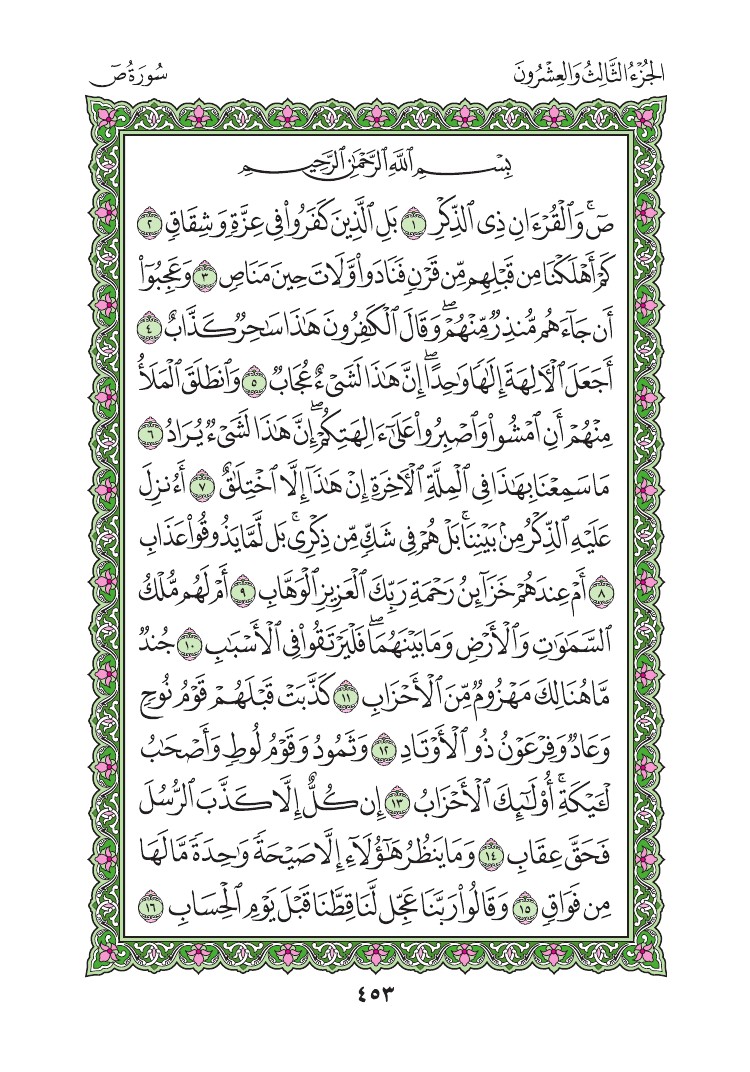 الجزء الثالث والعشرون
سورة ص
بِسْمِ ٱللَّهِ ٱلرَّحْمَٰنِ ٱلرَّحِيمِ
صٓۚ وَٱلْقُرْءَانِ ذِى ٱلذِّكْرِ ١ بَلِ ٱلَّذِينَ كَفَرُوا۟ فِى عِزَّةٍ وَشِقَاقٍ ٢
كَمْ أَهْلَكْنَا مِن قَبْلِهِم مِّن قَرْنٍ فَنَادَوا۟ وَّلَاتَ حِينَ مَنَاصٍ ٣ وَعَجِبُوٓا۟
أَن جَآءَهُم مُّنذِرٌ مِّنْهُمْۖ وَقَالَ ٱلْكَٰفِرُونَ هَٰذَا سَٰحِرٌ كَذَّابٌ ٤
أَجَعَلَ ٱلْءَالِهَةَ إِلَٰهًا وَٰحِدًاۖ إِنَّ هَٰذَا لَشَىْءٌ عُجَابٌ ٥ وَٱنطَلَقَ ٱلْمَلَأُ
مِنْهُمْ أَنِ ٱمْشُوا۟ وَٱصْبِرُوا۟ عَلَىٰٓ ءَالِهَتِكُمْۖ إِنَّ هَٰذَا لَشَىْءٌ يُرَادُ ٦
مَا سَمِعْنَا بِهَٰذَا فِى ٱلْمِلَّةِ ٱلْءَاخِرَةِ إِنْ هَٰذَآ إِلَّا ٱخْتِلَٰقٌ ٧ أَءُنزِلَ
عَلَيْهِ ٱلذِّكْرُ مِنۢ بَيْنِنَاۚ بَلْ هُمْ فِى شَكٍّ مِّن ذِكْرِىۚ بَل لَّمَّا يَذُوقُوا۟ عَذَابِ
٨ أَمْ عِندَهُمْ خَزَآئِنُ رَحْمَةِ رَبِّكَ ٱلْعَزِيزِ ٱلْوَهَّابِ ٩ أَمْ لَهُم مُّلْكُ
ٱلسَّمَٰوَٰتِ وَٱلْأَرْضِ وَمَا بَيْنَهُمَاۖ فَلْيَرْتَقُوا۟ فِى ٱلْأَسْبَٰبِ ١٠ جُندٌ
مَّا هُنَالِكَ مَهْزُومٌ مِّنَ ٱلْأَحْزَابِ ١١ كَذَّبَتْ قَبْلَهُمْ قَوْمُ نُوحٍ
وَعَادٌ وَفِرْعَوْنُ ذُو ٱلْأَوْتَادِ ١٢ وَثَمُودُ وَقَوْمُ لُوطٍ وَأَصْحَٰبُ
لْـَٔيْكَةِۚ أُو۟لَٰٓئِكَ ٱلْأَحْزَابُ ١٣ إِن كُلٌّ إِلَّا كَذَّبَ ٱلرُّسُلَ
فَحَقَّ عِقَابِ ١٤ وَمَا يَنظُرُ هَٰٓؤُلَآءِ إِلَّا صَيْحَةً وَٰحِدَةً مَّا لَهَا
مِن فَوَاقٍ ١٥ وَقَالُوا۟ رَبَّنَا عَجِّل لَّنَا قِطَّنَا قَبْلَ يَوْمِ ٱلْحِسَابِ ١٦
٤٥٣